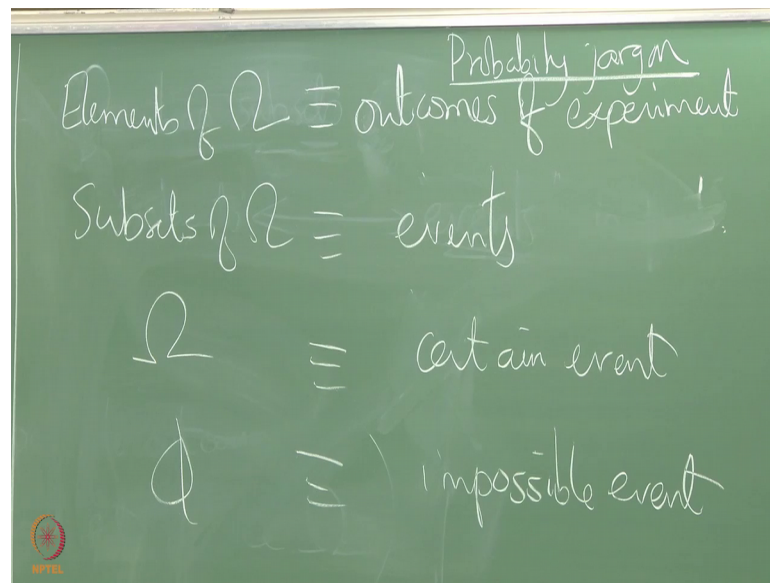 Probability jargon
Elements of Ω ≡ outcomes of experiment
Subsets of Ω ≡ events
Ω ≡ certain event
ϕ ≡ impossible event
NPTEL